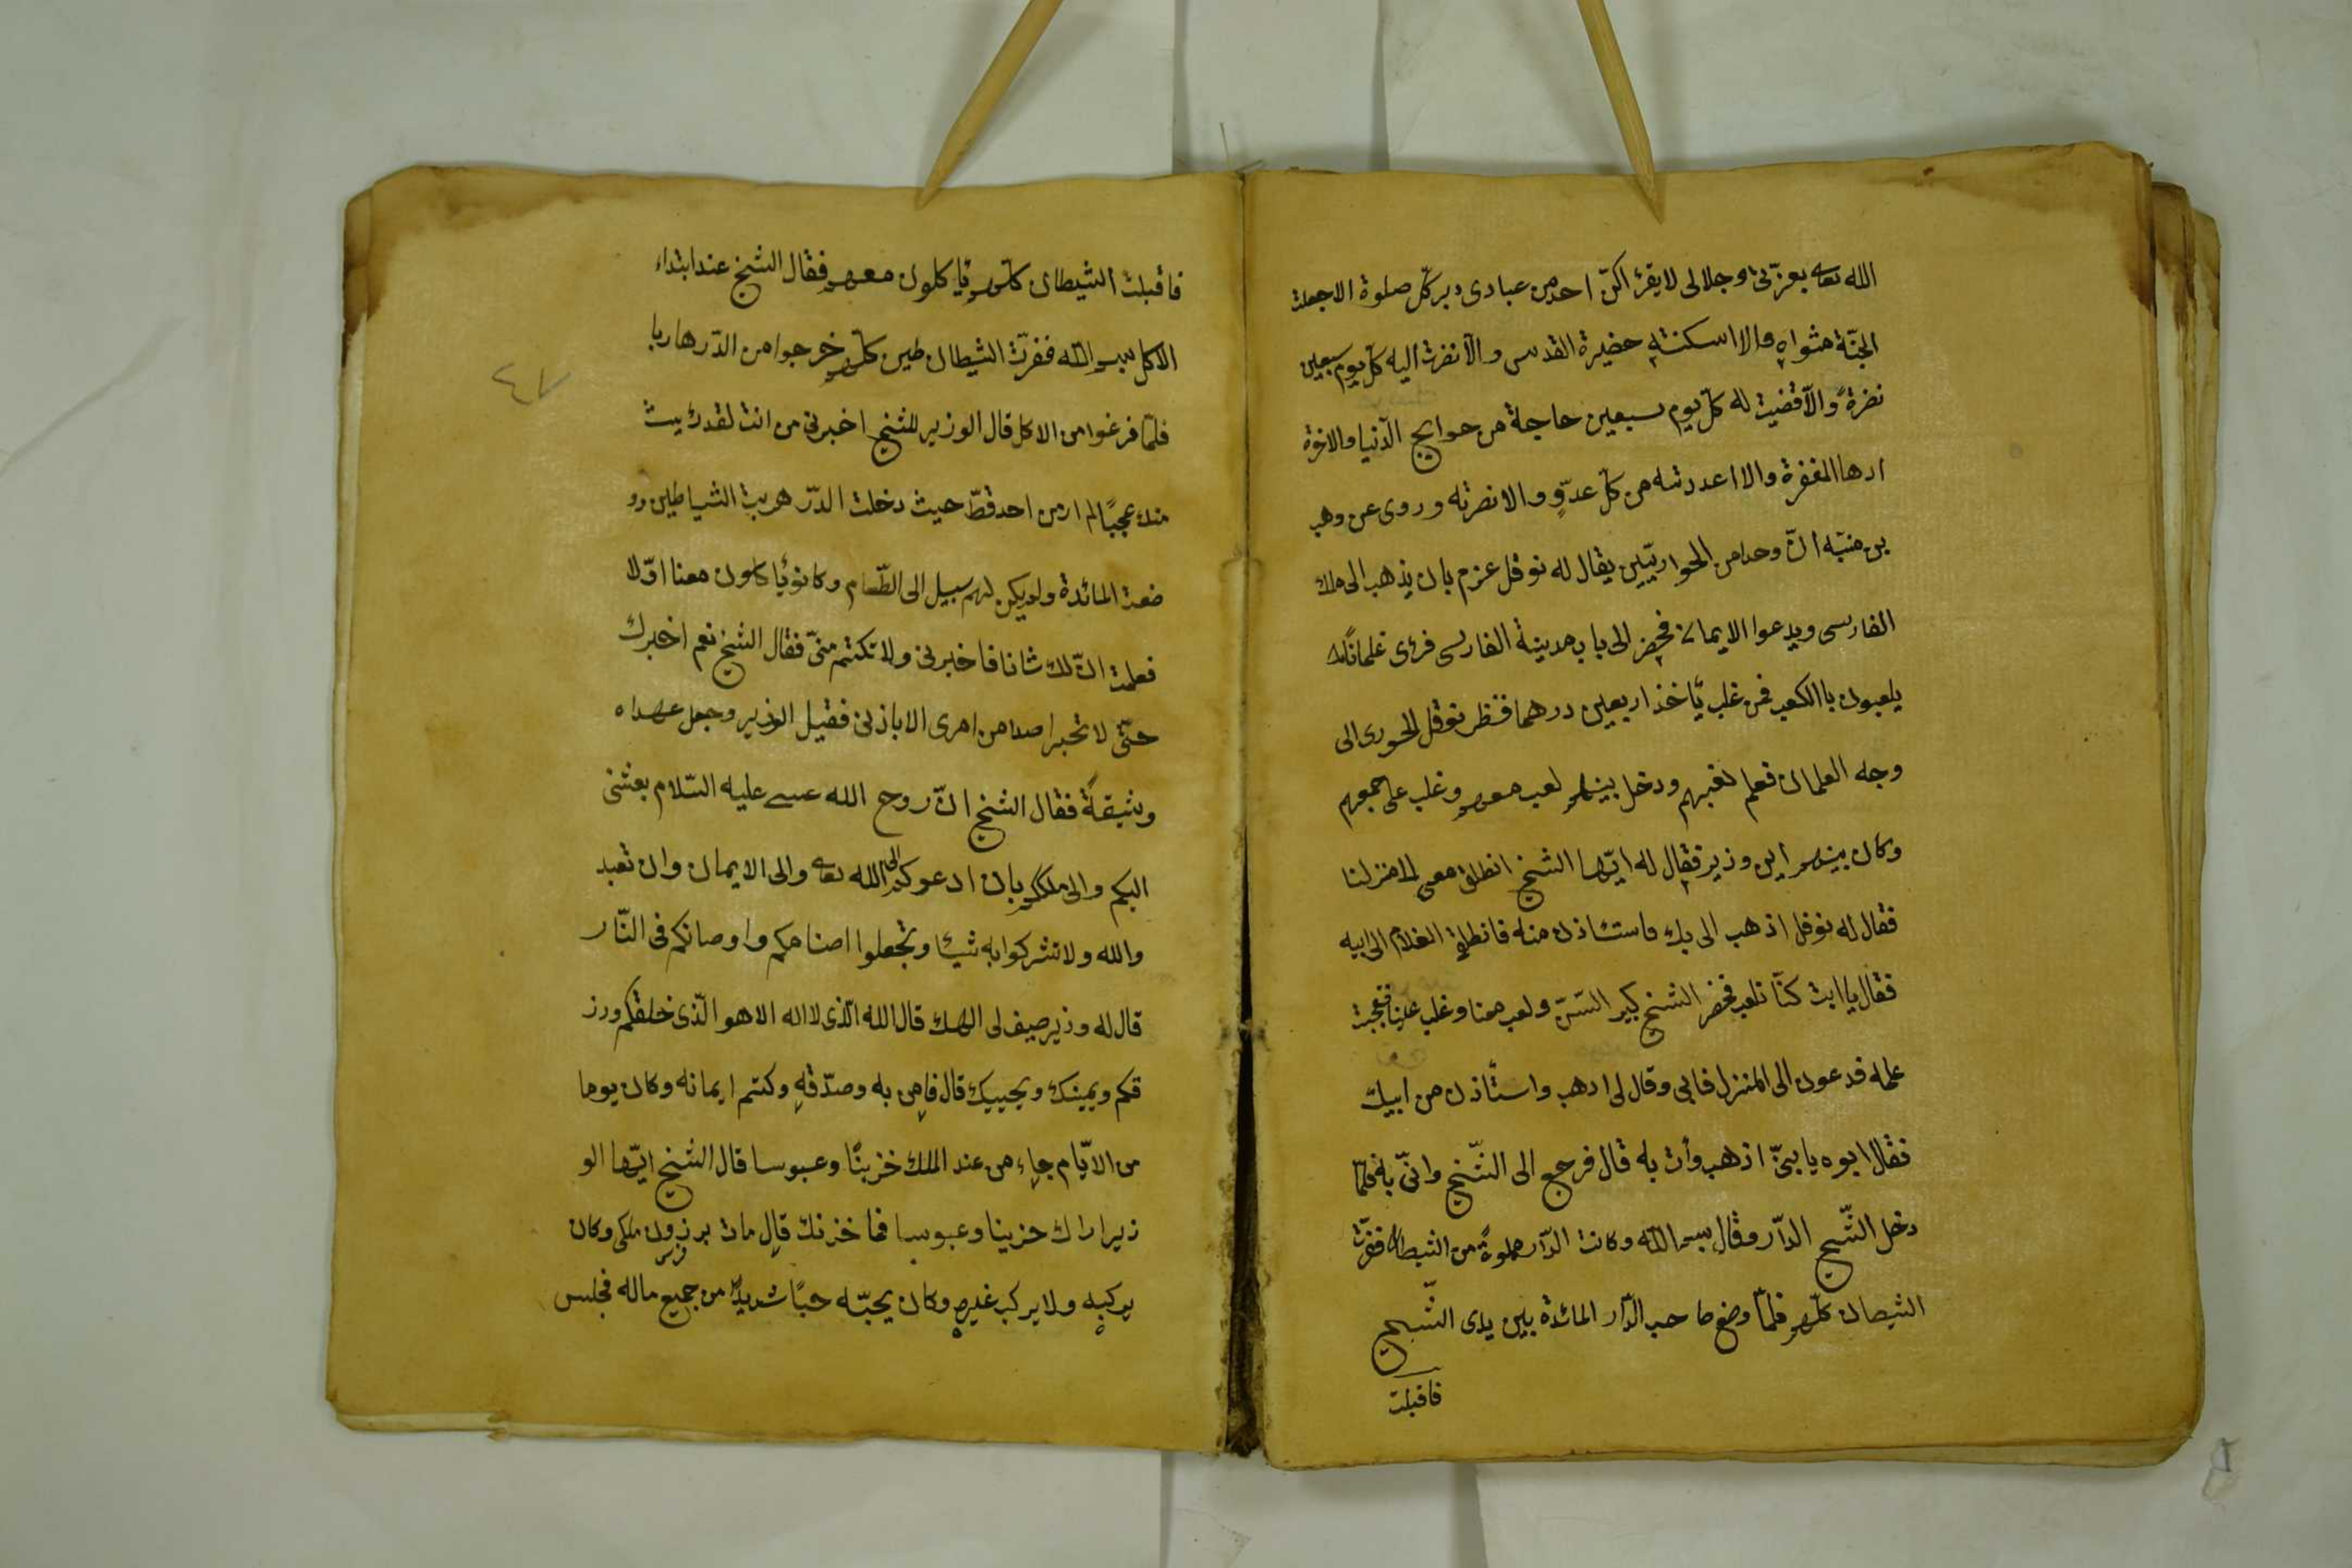 الله تعا بعزّتى وجلالى لا يقرٔ اكنّ احد من عبادى دبر كلّ صلوة الا جعلت
الجنّة مثواه والا اسكنته حضيرة القدس والّا نظرت اليه كلّ يوم سبعين
نضرةً والّا قضيت له كلّ يوم سبعين حاجة من حوايج الدّنيا والاخرة
ادها المغفرة والا اعددته من كلّ عدّوٍ والا نصرته وروى عن وهب
بن منبّه انّ وحدا من الحواريّين يقال له نوفل عزم بان يذهب الى ملك
الفارسى ويدعوا الايمان فحضر الى باب مدينة الفارسى فرٔى غلمانًا
يلعبون با الكعب فمن غلب ئاخذ اربعين درهما فنظر نوفل الحورى الى
وجه الغلمان فعلم لغبرهم ودخل بينهم لعب معهم وغلب على جمعهم
وكان بينهم اين وزير فقال له ايّها الشيخ انطلق معى الى منزلنا
فقال له نوفل اذهب الى بك واستٔاذن منه فانطلق الغلام الى ابيه
فقال يا ابت كنّا نلعب فحضر الشيخ كبير السّنّ ولعب معنا وغلب علينا فتعجبت
علمه فدعون الى المنزل فابى وقال لى ادهب واستأذن من ابيك
فقال ابوه يا بنىّ اذهب وأت به قال فرجع الى الشّيخ واتىّ به فلمّا
دخل الشّيخ الدّار وقال بسم اللّه وكانت الدّار مملوةً من الشيطان ففرّت
الشيطان كلّهم فلمّا وضع صاحب الدّار المائدة بين يدى الشّيخ
فاقبلت
فاقبلت الشيطان كلّهم ئاكلون معهم فقال الشيخ عند ابتداء
الاكل بسم اللّه ففرّت الشيطان طين كلّهم خرجوا من الدّر هاربا
فلمّا فرغوا من الاكل قال الوزير للشيخ اخبرنى من انت لقد رٔيت
منك عجبًا لم ار من احد قطّ حيث دخلت الدّر هربت الشياطين وو
ضعت المائدة ولم يكن لهم سبيل الى الطّعام وكانو ئاكلون معنا اوّلا
فعلمت انّ لك شانا فاخبرنى ولا تكتم منّى فقال الشيخ نعم اخبرك
حتّى لا تخبر احدا من امرى الا باذنى فقيل الوزير وجعل عهداه
وثيقةً فقال الشيخ انّ روح الله عسى عليه السّلام بعثنى
اليكم والى ملككم بان ادعوكم الى الله تعا والى الايمان وان تعبد
والله ولا تشركوا به شئا وتجعلوا اصنامكم واوصانكم فى النّار
قال له وزير صيف لى الهك قال الله الّذى لا اله الا هو الّذى خلقكم ورز
قكم ويميتك ويحييك قال فامن به وصدّقه وكتم ايمانه وكان يوما
من الايّام جاء من عند الملك خزينًا وعبوسا قال الشيخ ايّها الو
زير اراك حزينا وعبوسا فما خزنك قال مات برذون ملكى وكان
يركبه ولا يركب غيره وكان يحبّه حبًا شديدًا من جميع ماله فجلس
٤٧